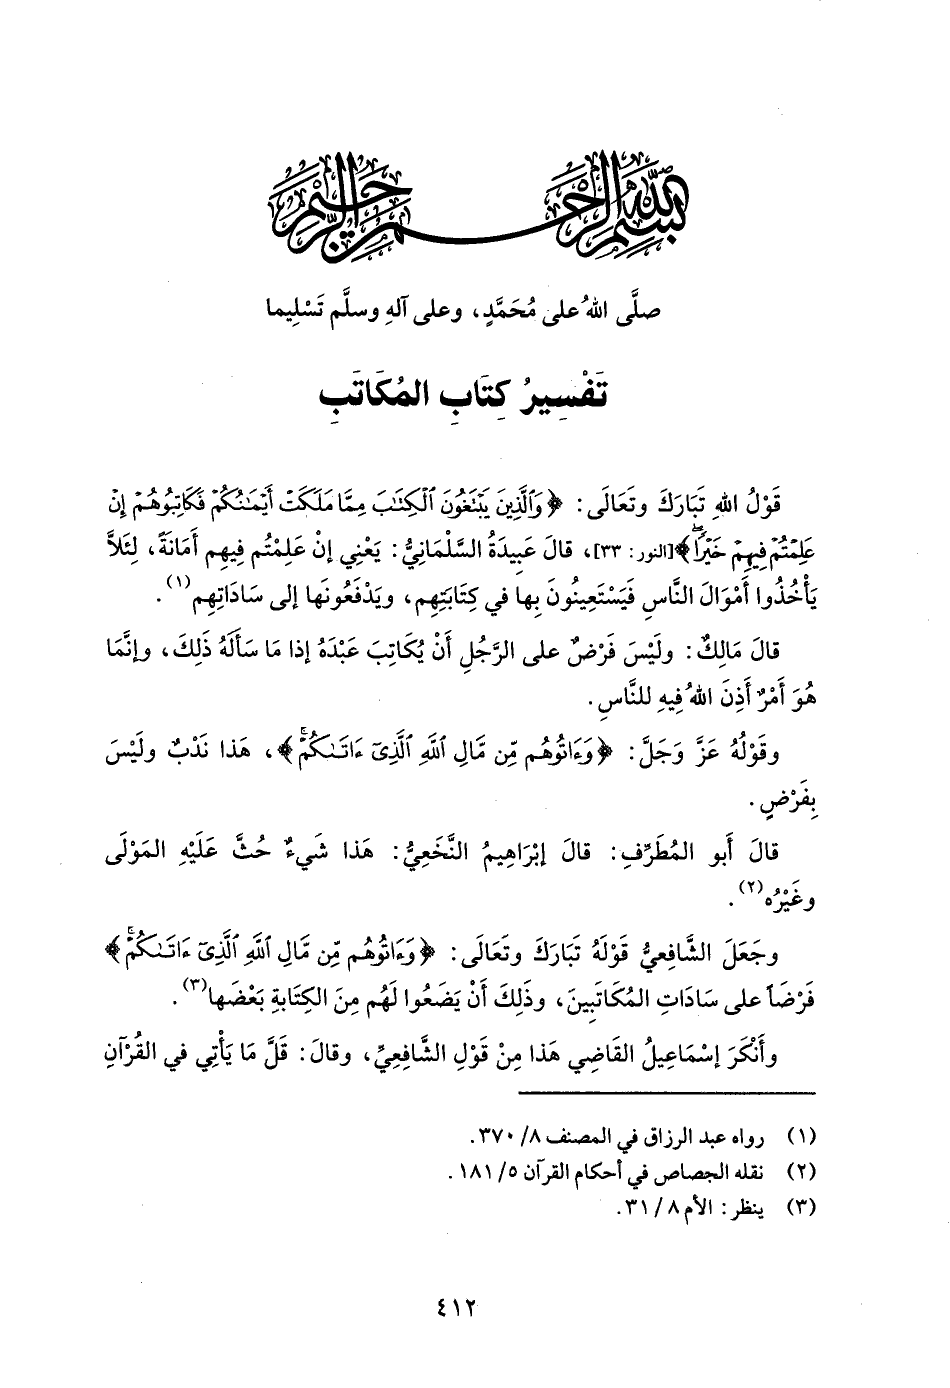 بسم الله الرحمن الرحيم
صلَّى اللهُ على مُحَمَّدٍ، وعلى آلهِ وسلَّم تَسْلِيما
تَفْسِيرُ كِتَابِ المُكَاتَبِ
قَوْلُ اللهِ تَبَارَكَ وتَعَالَى: ﴿وَٱلَّذِينَ يَبْتَغُونَ ٱلْكِتَٰبَ مِمَّا مَلَكَتْ أَيْمَٰنُكُمْ فَكَاتِبُوهُمْ إِنْ
عَلِمْتُمْ فِيهِمْ خَيْرًاۖ﴾ [النور: ٣٣]، قالَ عَبِيدَةُ السَّلْمَانِيُّ: يَعْنِي إنْ عَلِمْتُم فِيهِم أَمَانَةً، لِئَلاَّ
يَأْخُذُوا أَمْوَالَ النَّاسِ فَيَسْتَعِينُونَ بِها في كِتَابَتِهِم، ويَدْفَعُونَها إلى سَادَاتِهِم(١).
قالَ مَالِكٌ: ولَيْسَ فَرْضٌ على الرَّجُلِ أَنْ يُكَاتِبَ عَبْدَهُ إذا مَا سَأَلَهُ ذَلِكَ، وإنَّمَا
هُوَ أَمْرٌ أَذِنَ اللهُ فِيهِ للنَّاسِ.
وقَوْلُهُ عَزَّ وَجَلَّ: ﴿وَءَاتُوهُم مِّن مَّالِ ٱللَّهِ ٱلَّذِىٓ ءَاتَىٰكُمْۚ﴾، هَذا نَدْبٌ ولَيْسَ
بِفَرْضٍ.
قالَ أَبو المُطَرِّفِ: قالَ إبْرَاهِيمُ النَّخَعِيُّ: هَذا شَيءٌ حُثَّ عَلَيْهِ المَوْلَى
وغَيْرُه(٢).
وجَعَلَ الشَّافِعِيُّ قَوْلَهُ تَبَارَكَ وتَعَالَى: ﴿وَءَاتُوهُم مِّن مَّالِ ٱللَّهِ ٱلَّذِىٓ ءَاتَىٰكُمْۚ﴾
فَرْضَاً على سَادَاتِ المُكَاتَبِينَ، وذَلِكَ أَنْ يَضَعُوا لَهُم مِنَ الكِتَابةِ بَعْضَها(٣).
وأَنْكَرَ إسْمَاعِيلُ القَاضِي هَذا مِنْ قَوْلِ الشَّافِعِيِّ، وقالَ: قَلَّ مَا يَأْتِي في القُرْآنِ
(١) رواه عبد الرزاق في المصنف ٨/ ٣٧٠.
(٢) نقله الجصاص في أحكام القرآن ٥/ ١٨١.
(٣) ينظر: الأم ٨/ ٣١.
٤١٢